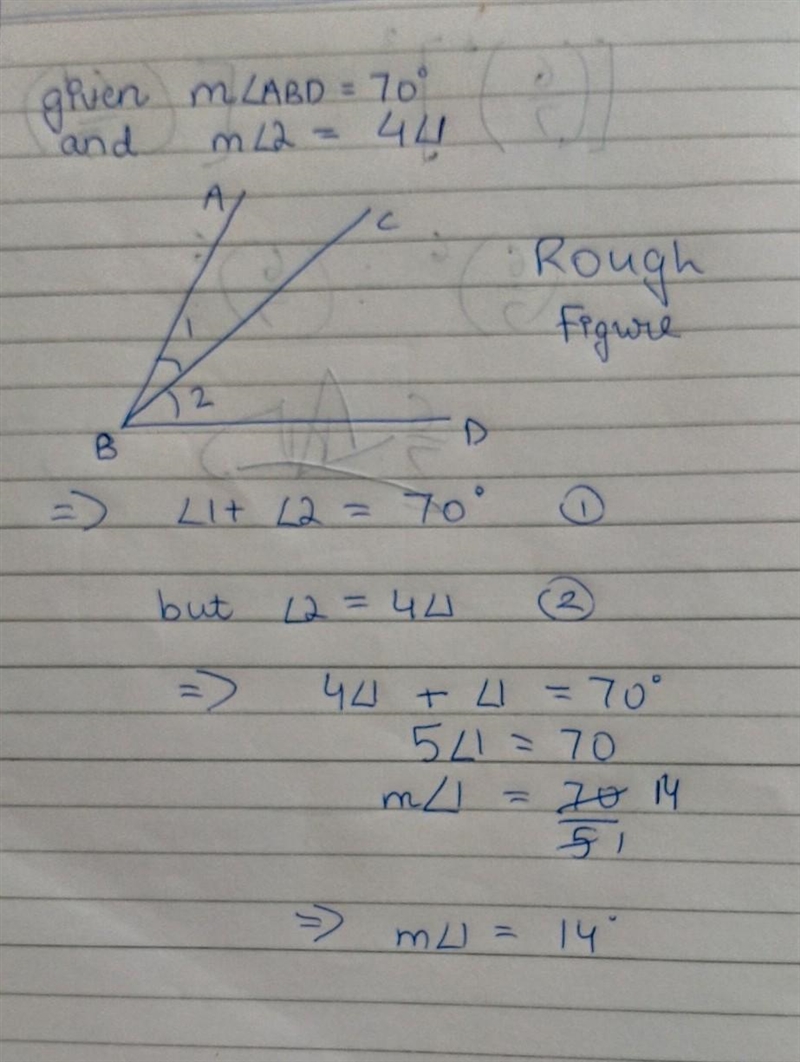 given m∠ABD = 70°
and m∠2 = 4∠1
A
C
Rough
Figure
1
2
B
D
=> ∠1 + ∠2 = 70° ①
but ∠2 = 4∠1 ②
=> 4∠1 + ∠1 = 70°
5∠1 = 70
m∠1 = 70 14
5 1
=> m∠1 = 14°